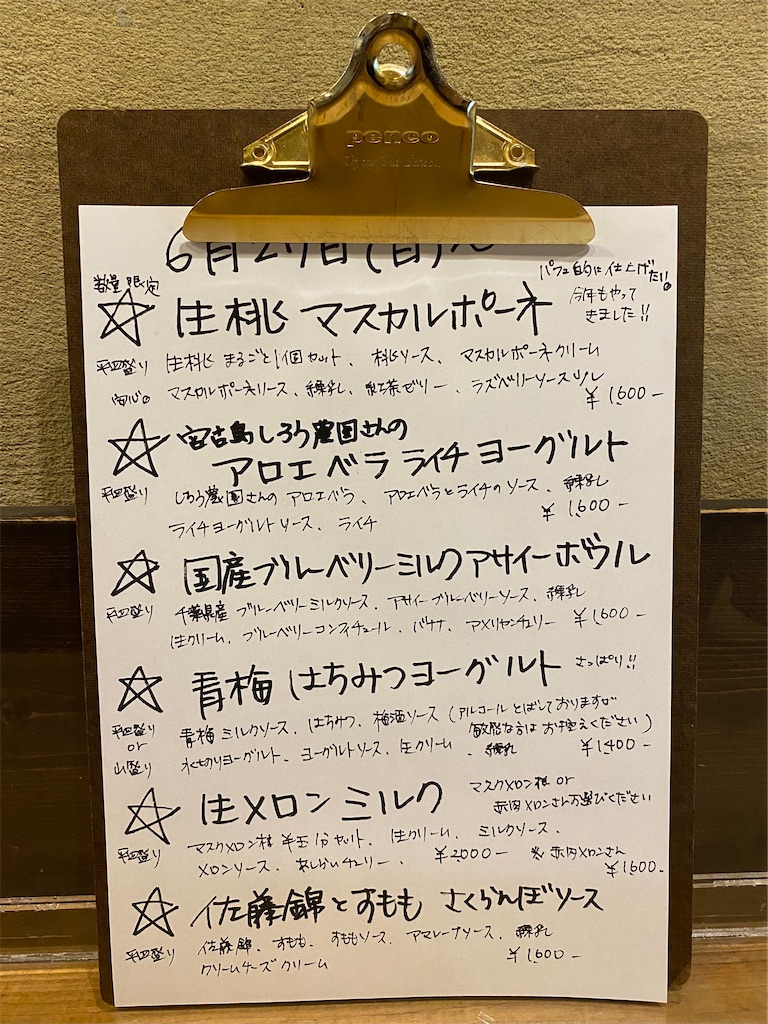 penco
6月27日(日)
数量限定
生桃 マスカルポーネ
パフェ的に仕上げたい。
今年もやって
きました!!
平皿盛り
生桃 まるごと1個セット、桃ソース、マスカルポーネクリーム
マスカルポーネソース、練乳、紅茶ゼリー、ラズベリーソース
¥1,600-
宮古島しろう農園さんの
アロエベラ ライチ ヨーグルト
平皿盛り
しろう農園さんの アロエベラ、アロエベラとライチのソース、練乳
ライチヨーグルトソース、ライチ
¥1,600-
国産ブルーベリーミルクアサイーボウル
平皿盛り
千葉県産 ブルーベリーミルクソース、アサイーブルーベリーソース、練乳
生クリーム、ブルーベリーコンフィチュール、バナナ、アメリカンチェリー ¥1,600-
青梅 はちみつヨーグルト さっぱり!!
平皿盛り
or
山盛り
青梅 ミルクソース、はちみつ、梅酒ソース (アルコールとばしておりますが
敏感な方は お控えください)
水切りヨーグルト、ヨーグルトソース、生クリーム、練乳
¥1,400-
生メロン ミルク
マスクメロン様 or
赤肉メロンさんお選びください
平皿盛り
マスクメロン様 半玉1/2セット、生クリーム、ミルクソース、
メロンソース、あしらいチェリー、 ¥2,000- ※ 赤肉メロンさん
¥1,600-
佐藤錦とすもも さくらんぼソース
平皿盛り
佐藤錦、すもも、すももソース、アマレーナソース、練乳
クリームチーズクリーム
¥1,600-